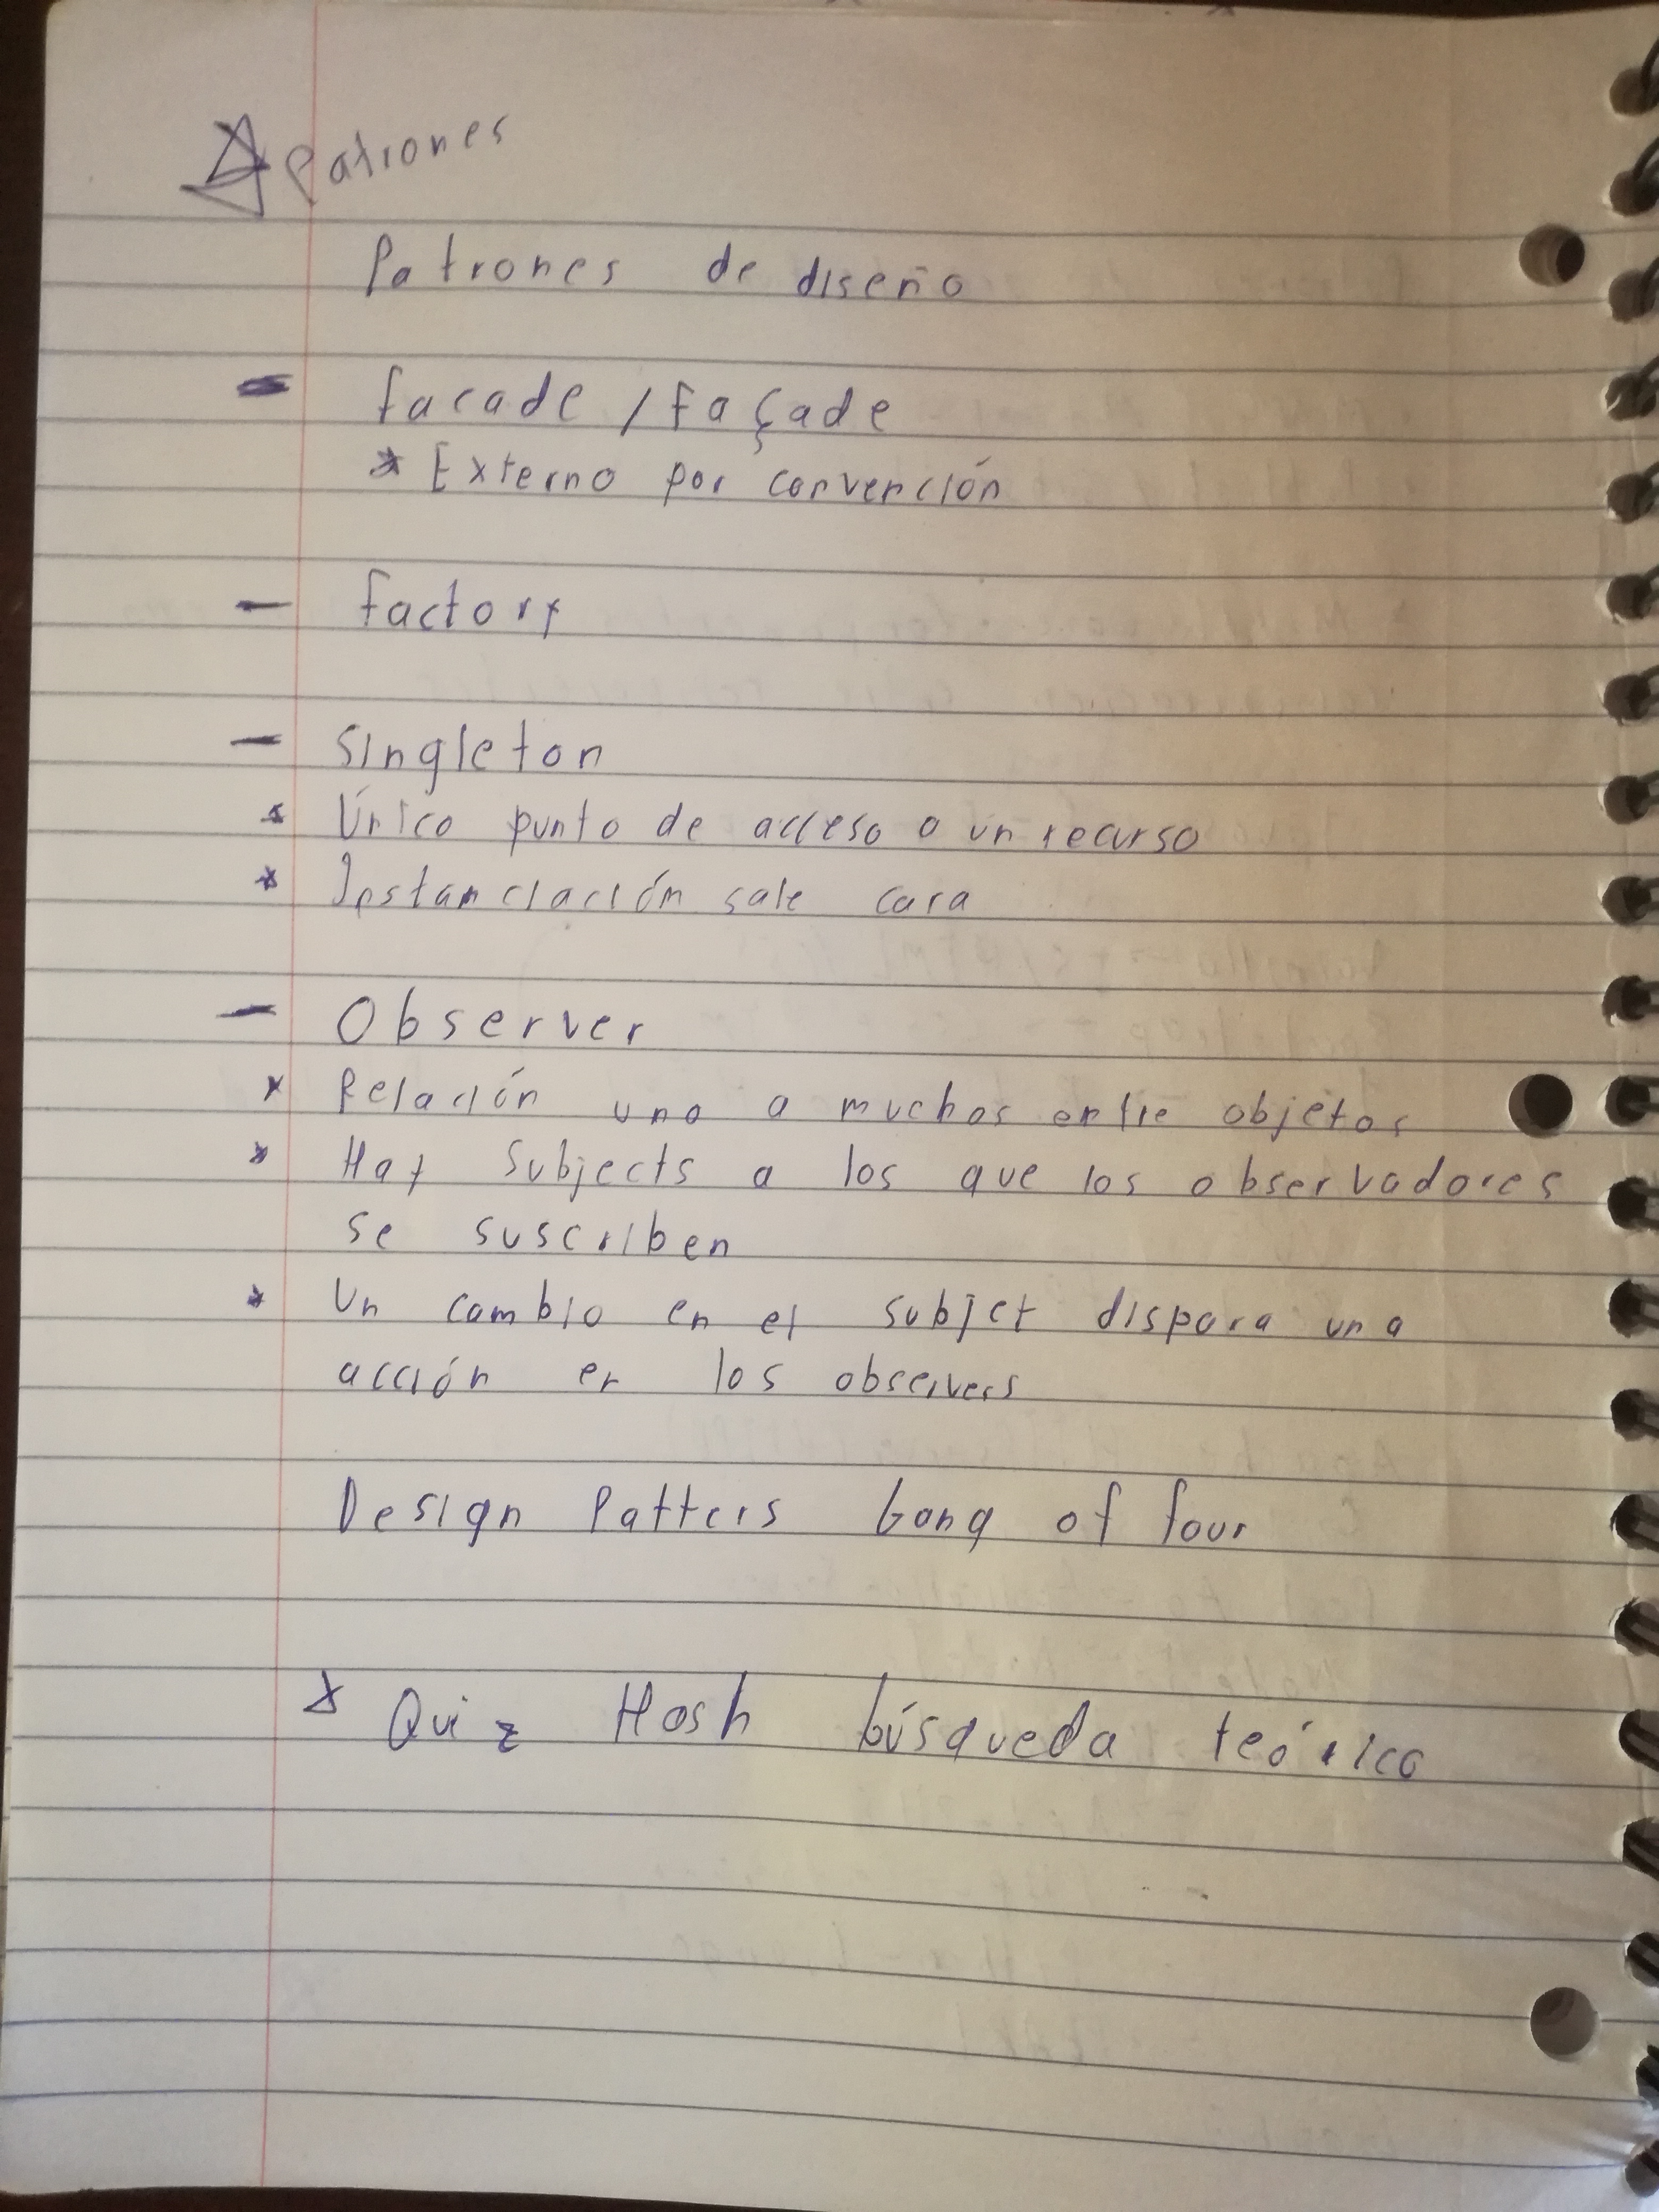 Patrones
Patrones de diseño
- facade / façade
* Externo por convención
- factory
- Singleton
* Único punto de acceso a un recurso
* Instanciación sale cara
- Observer
* Relación uno a muchos entre objetos
* Hay Subjects a los que los observadores
se suscriben
* Un cambio en el subjet dispara una
acción en los observers
Design Patters Gang of four
* Quiz Hash búsqueda teórico